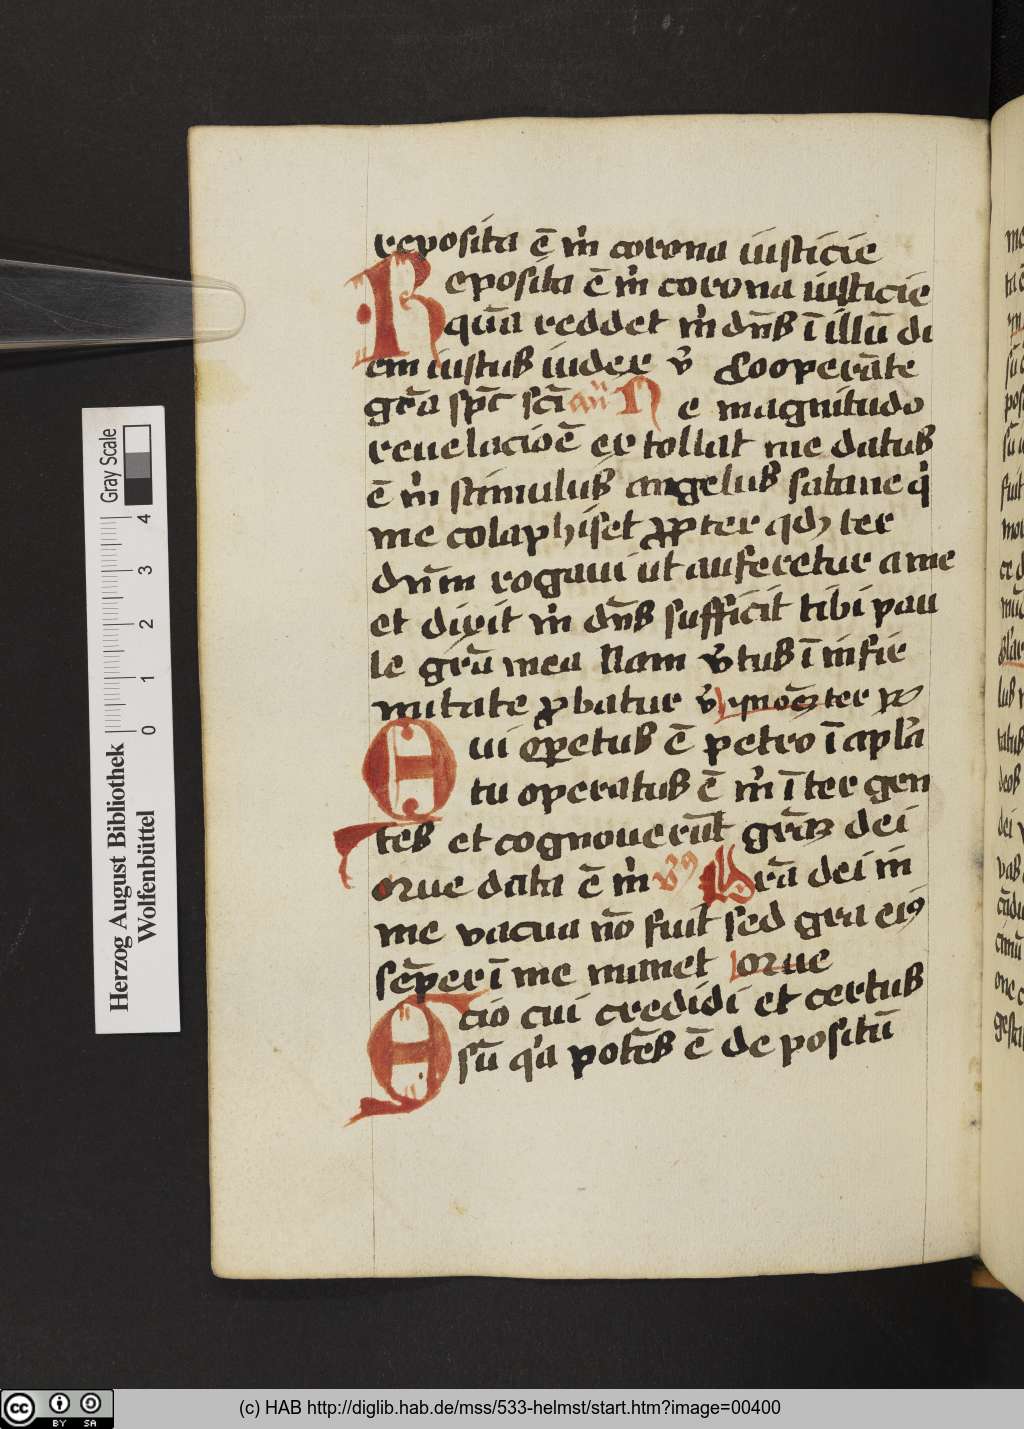 reposita ē m̄ corona iusticie
Reposita ē m̄ corona iusticie
quā reddet m̄ dn̄s ī illū di
em iustus iudex v̄ Cooperāte
gr̄a sp̄c sc̄i an̄ Ne magnitudo
reuelacioē extollat me datus
ē m̄ stimulus angelus satane q̇
me colaphiset ꝓpter qd ter
dn̄m rogaui ut auferetur a me
et dixit m̄ dn̄s sufficit tibi pau
le gr̄a mea Nam v̄tus ī infir
mitate ꝓbatur v̄
Qui oꝑetus ē petro ī apl̄a
tu operatus ē m̄ īter gen
tes et cognouerūt gr̄aꝫ dei
que data ē m̄ v̄ꝰ Gr̄a dei in
me vacua nō fuit sed gra eiꝰ
sēper ī me manet que
Scio cui credidi et certus
sū q̇a potēs ē depositū
Gray Scale
4
3
2
1
0
Herzog August Bibliothek
Wolfenbüttel
cc BY SA
(c) HAB http://diglib.hab.de/mss/533-helmst/start.htm?image=00400